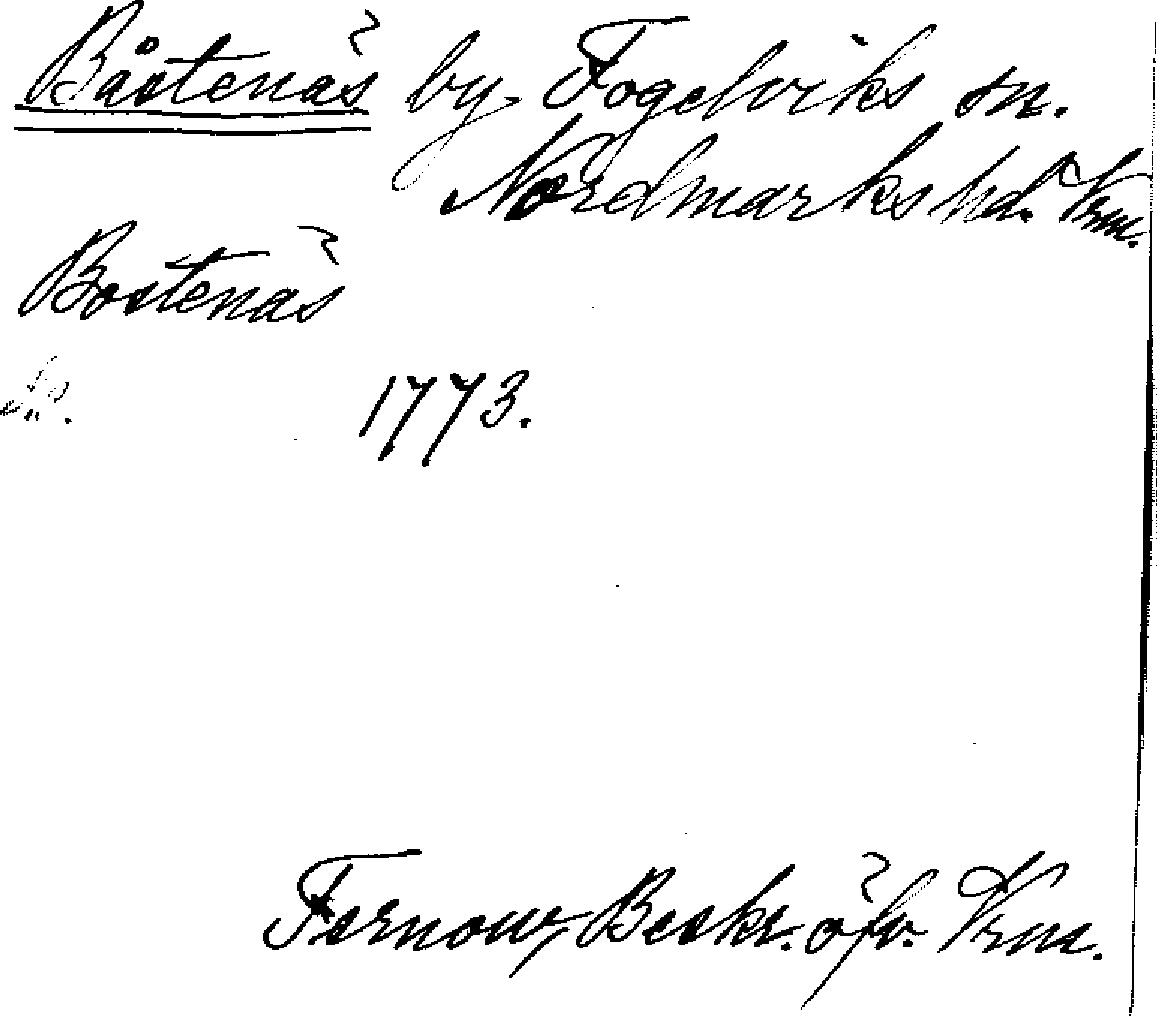 Båstenäs by, Fogelviks sn.
Nordmarks hd. Vrm.
Bostenäs
1773.
Fernow, Beskr. öfv. Vrm.